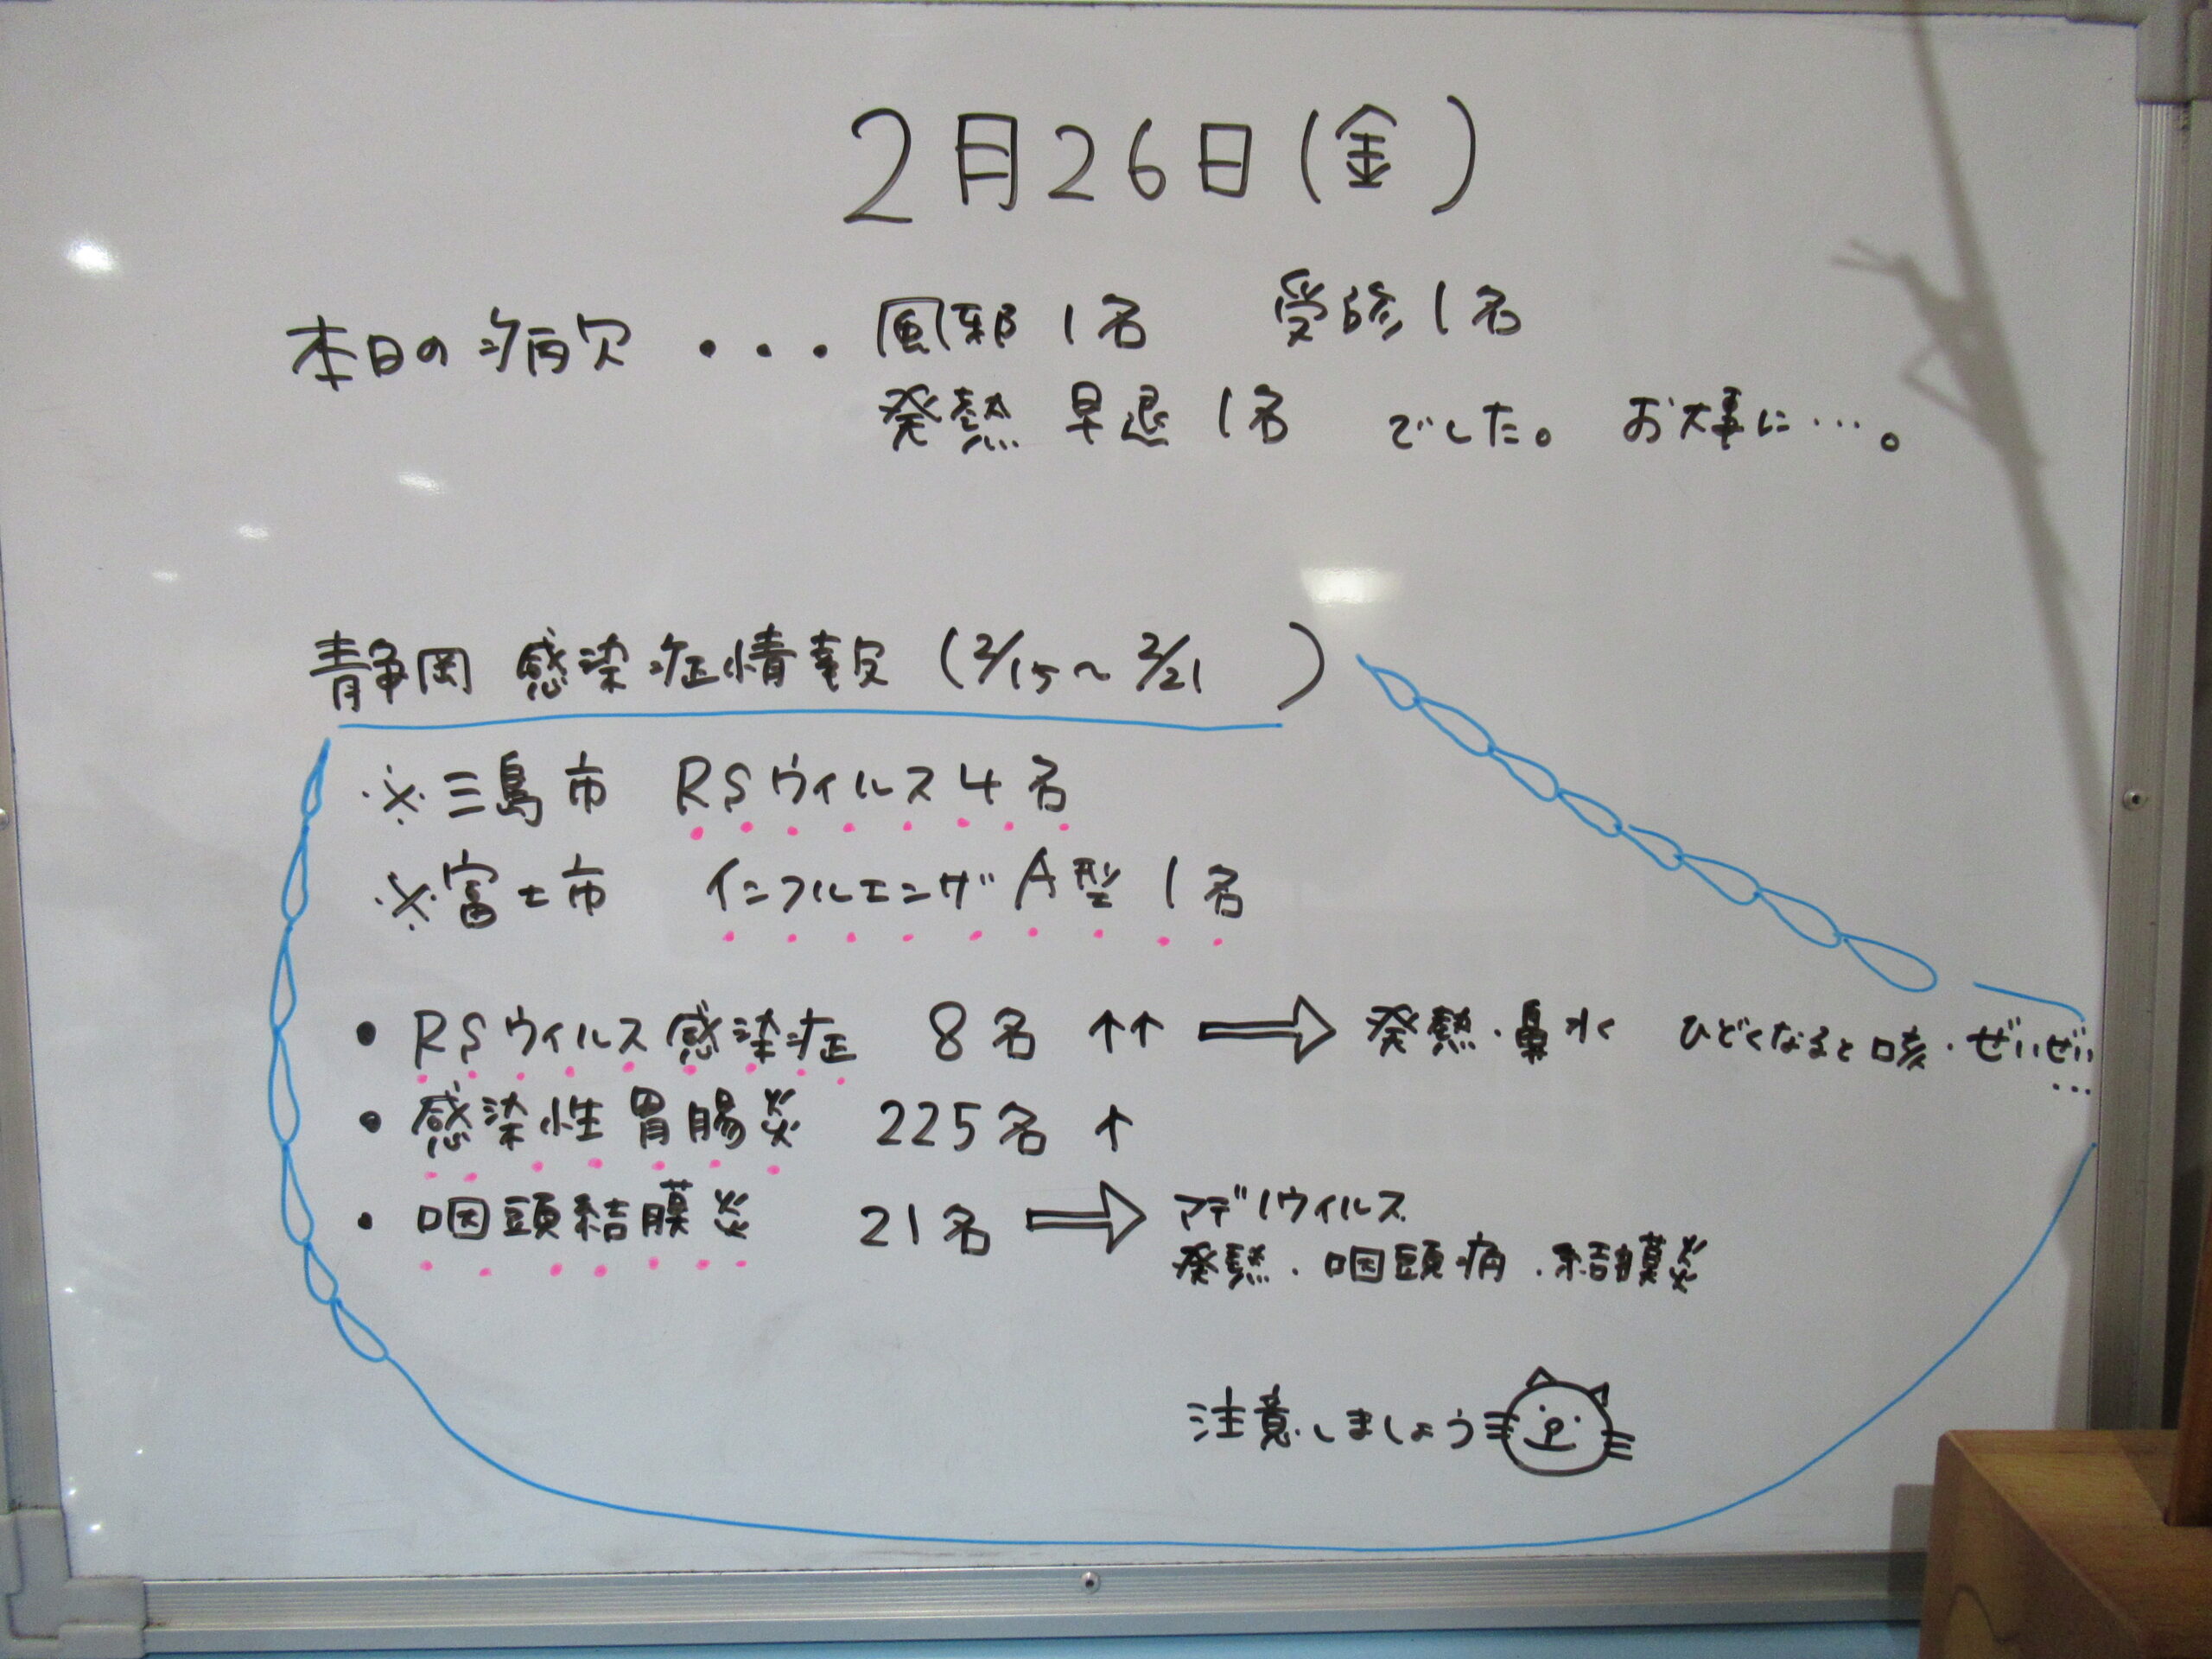 2月26日(金)
本日の病欠 ・・・ 風邪 1名 受診 1名
発熱 早退 1名 でした。 お大事に…。
静岡 感染症情報 (2/15～2/21 )
※三島市 RSウィルス4名
※富士市 インフルエンザA型 1名
• RSウィルス感染症 8名 ↑↑ ⇒ 発熱・鼻水 ひどくなると咳・ぜいぜい
…
• 感染性胃腸炎 225名 ↑
• 咽頭結膜炎 21名 ⇒ アデノウィルス
発熱・咽頭痛・結膜炎
注意しましょう